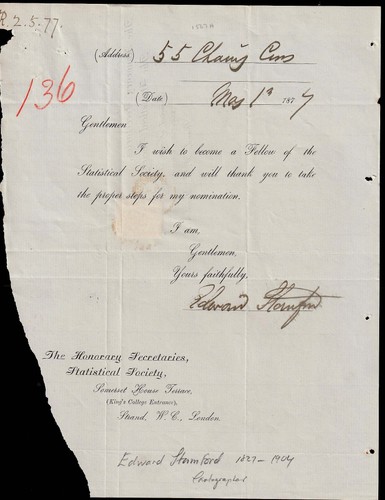 R. 2.5.77.
(Address) 55 Charing Cross
136
(Date) May 1st 1877
Gentlemen
I wish to become a Fellow of the
Statistical Society, and will thank you to take
the proper steps for my nomination.
I am,
Gentlemen,
Yours faithfully,
Edward Stanford
The Honorary Secretaries,
Statistical Society,
Somerset House Terrace,
(King's College Entrance),
Strand, W.C., London.
Edward Stanford 1827-1904